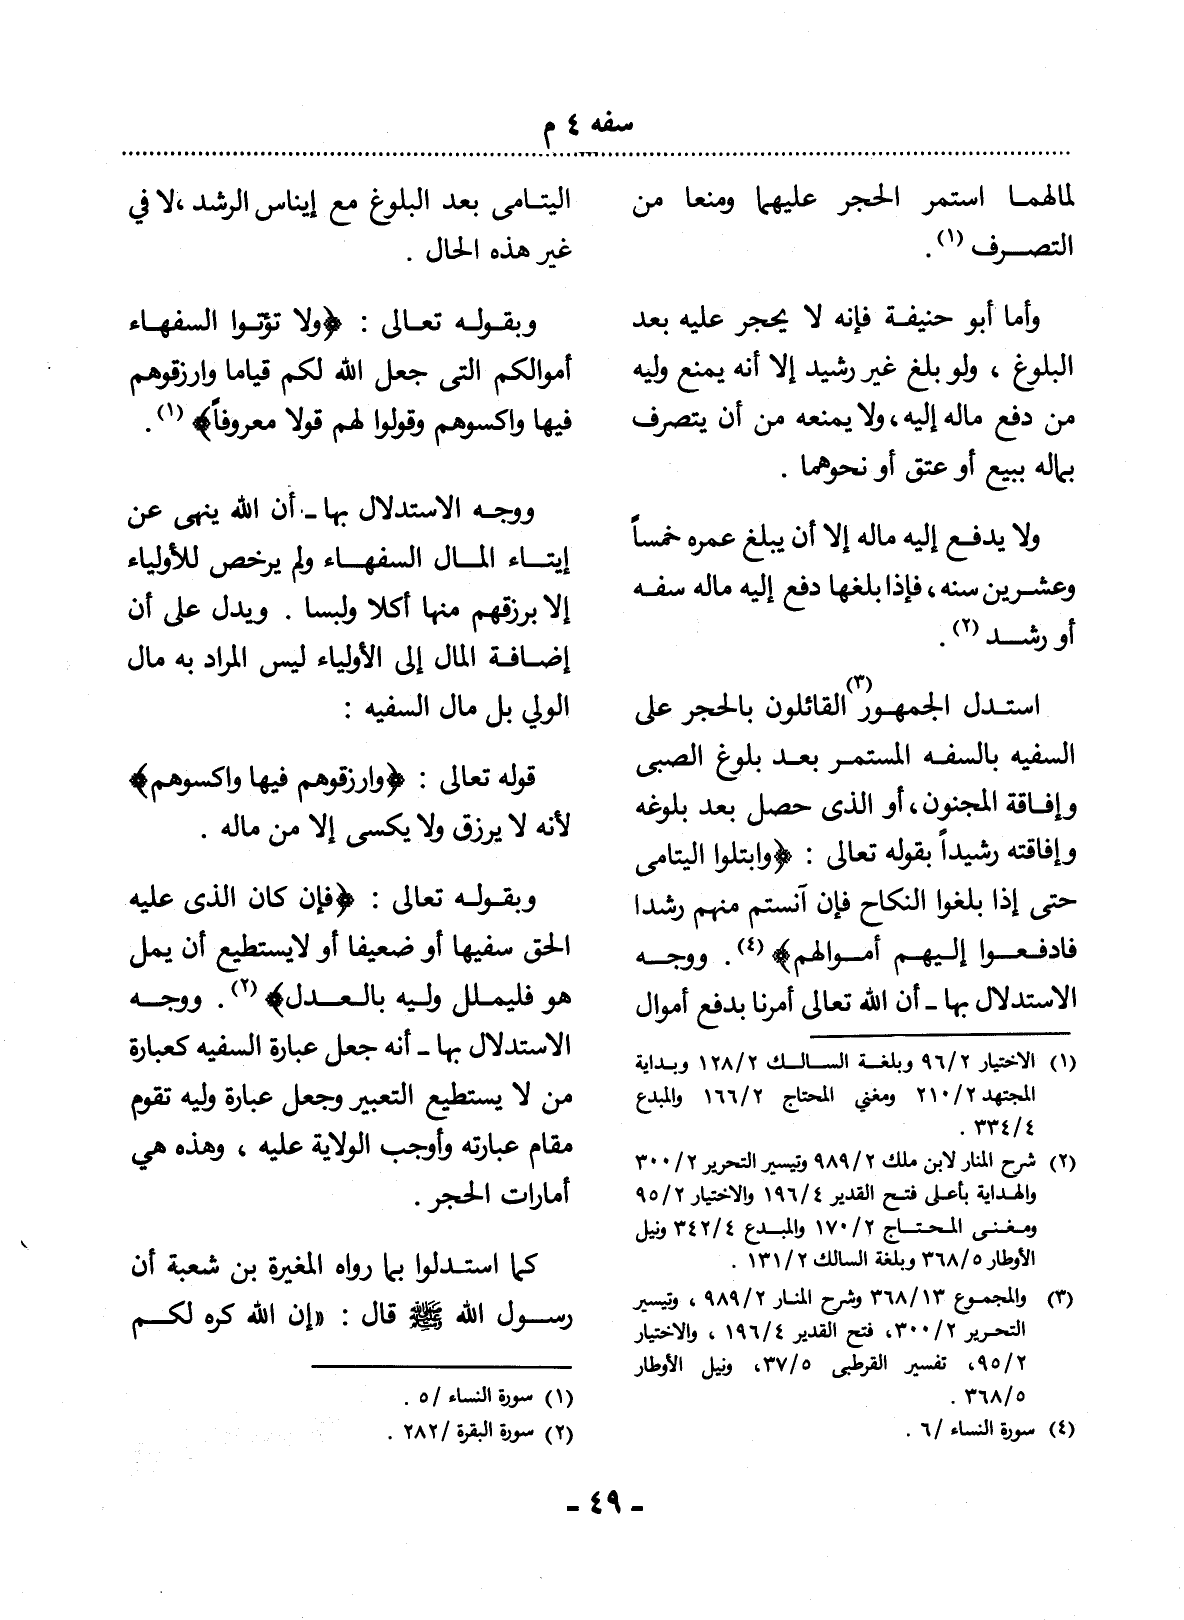 سفه ٤ م
لمالهما استمر الحجر عليهما ومنعا من
التصرف (١).
وأما أبو حنيفة فإنه لا يحجر عليه بعد
البلوغ ، ولو بلغ غير رشيد إلا أنه يمنع وليه
من دفع ماله إليه، ولا يمنعه من أن يتصرف
بماله ببيع أو عتق أو نحوهما .
ولا يدفع إليه ماله إلا أن يبلغ عمره خمساً
وعشرين سنه، فإذا بلغها دفع إليه ماله سفه
أو رشد (٢).
استدل الجمهور(٣) القائلون بالحجر على
السفيه بالسفه المستمر بعد بلوغ الصبى
وإفاقة المجنون، أو الذى حصل بعد بلوغه
وإفاقته رشيداً بقوله تعالى : ﴿وابتلوا اليتامى
حتى إذا بلغوا النكاح فإن آنستم منهم رشدا
فادفعوا إليهم أموالهم﴾ (٤). ووجه
الاستدلال بها ـ أن الله تعالى أمرنا بدفع أموال
(١) الاختيار ٩٦/٢ وبلغة السالك ١٢٨/٢ وبداية
المجتهد ٢١٠/٢ ومغني المحتاج ١٦٦/٢ والمبدع
٣٣٤/٤ .
(٢) شرح المنار لابن ملك ٩٨٩/٢ وتيسير التحرير ٣٠٠/٢
والهداية بأعلى فتح القدير ١٩٦/٤ والاختيار ٩٥/٢
ومغنى المحتاج ١٧٠/٢ والمبدع ٣٤٢/٤ ونيل
الأوطار ٣٦٨/٥ وبلغة السالك ١٣١/٢ .
(٣) والمجموع ٣٦٨/١٣ وشرح المنار ٩٨٩/٢ ، وتيسير
التحرير ٣٠٠/٢، فتح القدير ١٩٦/٤ ، والاختيار
٩٥/٢، تفسير القرطبى ٣٧/٥، ونيل الأوطار
٣٦٨/٥ .
(٤) سورة النساء /٦ .
اليتامى بعد البلوغ مع إيناس الرشد ،لا في
غير هذه الحال .
وبقوله تعالى : ﴿ولا تؤتوا السفهاء
أموالكم التى جعل الله لكم قياما وارزقوهم
فيها واكسوهم وقولوا لهم قولا معروفاً﴾ (١).
ووجه الاستدلال بها ـ أن الله ينهى عن
إيتاء المال السفهاء ولم يرخص للأولياء
إلا برزقهم منها أكلا ولبسا . ويدل على أن
إضافة المال إلى الأولياء ليس المراد به مال
الولي بل مال السفيه :
قوله تعالى : ﴿وارزقوهم فيها واكسوهم﴾
لأنه لا يرزق ولا يكسى إلا من ماله .
وبقوله تعالى : ﴿فإن كان الذى عليه
الحق سفيها أو ضعيفا أو لايستطيع أن يمل
هو فليملل وليه بالعدل﴾ (٢). ووجه
الاستدلال بها ـ أنه جعل عبارة السفيه كعبارة
من لا يستطيع التعبير وجعل عبارة وليه تقوم
مقام عبارته وأوجب الولاية عليه ، وهذه هي
أمارات الحجر .
كما استدلوا بما رواه المغيرة بن شعبة أن
رسول الله ﷺ قال : «إن الله كره لكم
(١) سورة النساء /٥ .
(٢) سورة البقرة /٢٨٢ .
ـ ٤٩ ـ